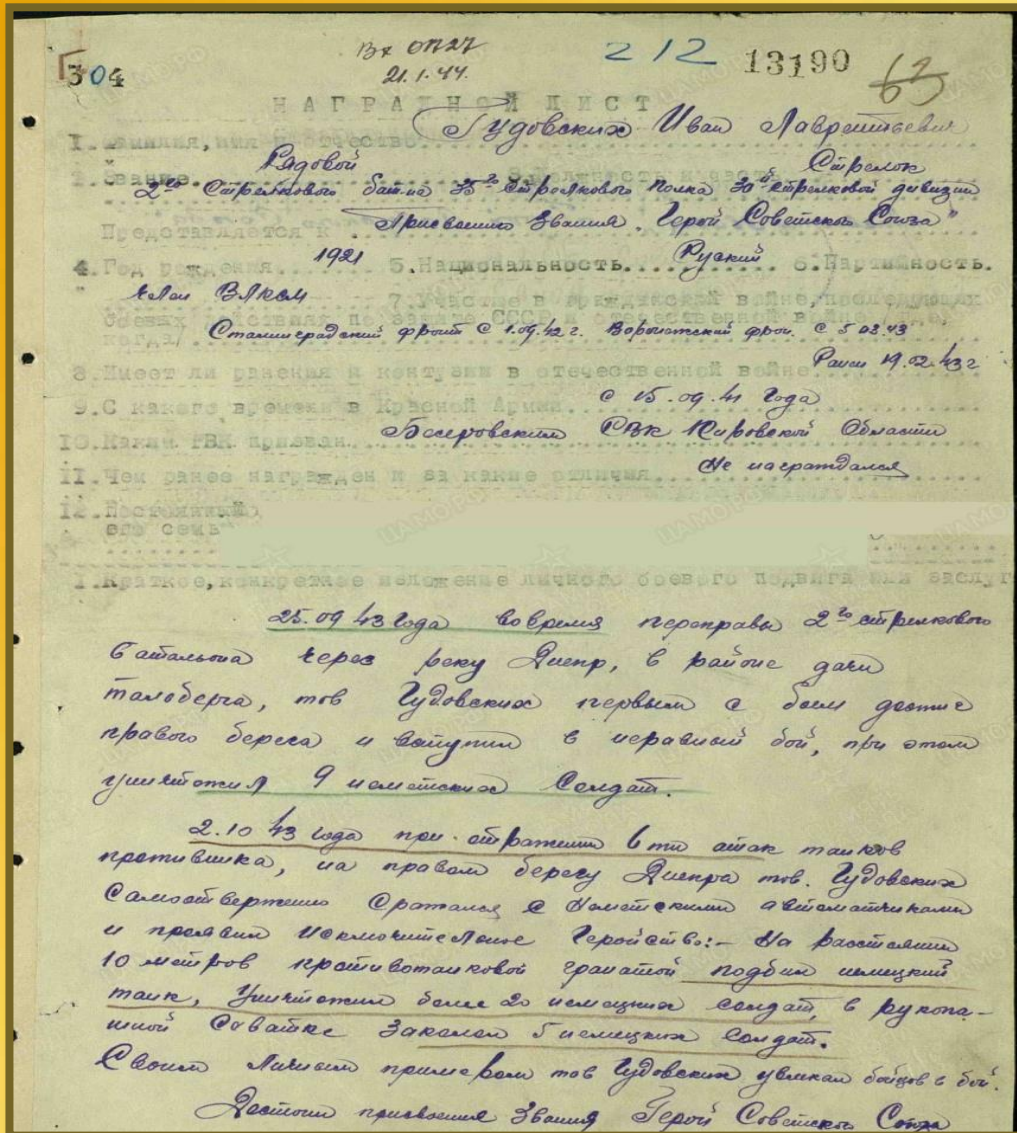 304
Вх 0727
21.1.44.
212 13190
НАГРАДНОЙ ЛИСТ
1. Фамилия, имя и отчество... Гудовских Иван Лаврентьевич
2. Звание... Рядовой Стрелок
2го Стрелкового бат-на 35го Стрелкового полка 30й стрелковой дивизии
Представляется к Присвоению Звания "Герой Советского Союза"
4. Год рождения... 1921 5. Национальность... Руский 6. Партийность.
член ВЛКСМ 7. Участие в гражданской войне, последующих
боевых действиях по защите СССР и отечественной войне
когда/ Сталинградский фронт с 1.09.42 г. Воронежский фрон. с 5 02.43
8. Имеет ли ранения и контузии в отечественной войне... Ранен 19.02.43 г
9. С какого времени в Красной Армии... с 15.09.41 года
10. Каким РВК призван... СВК Кировской Области
11. Чем ранее награжден и за какие отличия... Не награждался
12. Постоянный
его семь
1. Краткое, конкретное изложение личного боевого подвига или заслуг
25.09 43 года вовремя переправы 2го стрелкового
батальона через реку Днепр, в районе дачи
, тов Гудовских первым с боем достиг
правого берега и вступил в неравный бой, при этом
уничтожил 9 неметских Солдат.
2.10 43 года при отражении 6ти атак танков
противника, на правом берегу Днепра тов. Гудовских
Самоотвержено Сражался с Неметскими автоматчиками
и проявил Исключительное Геройство:- На расстоянии
10 метров противотанковой гранатой подбил немецкий
танк, Уничтожил более 20 немецких солдат, в рукопа-
шной Схватке Заколол 5 немецких Солдат.
Своим Личным примером тов Гудовских увлекал бойцов в бой.
Достоин присвоения Звания Герой Советского Союза